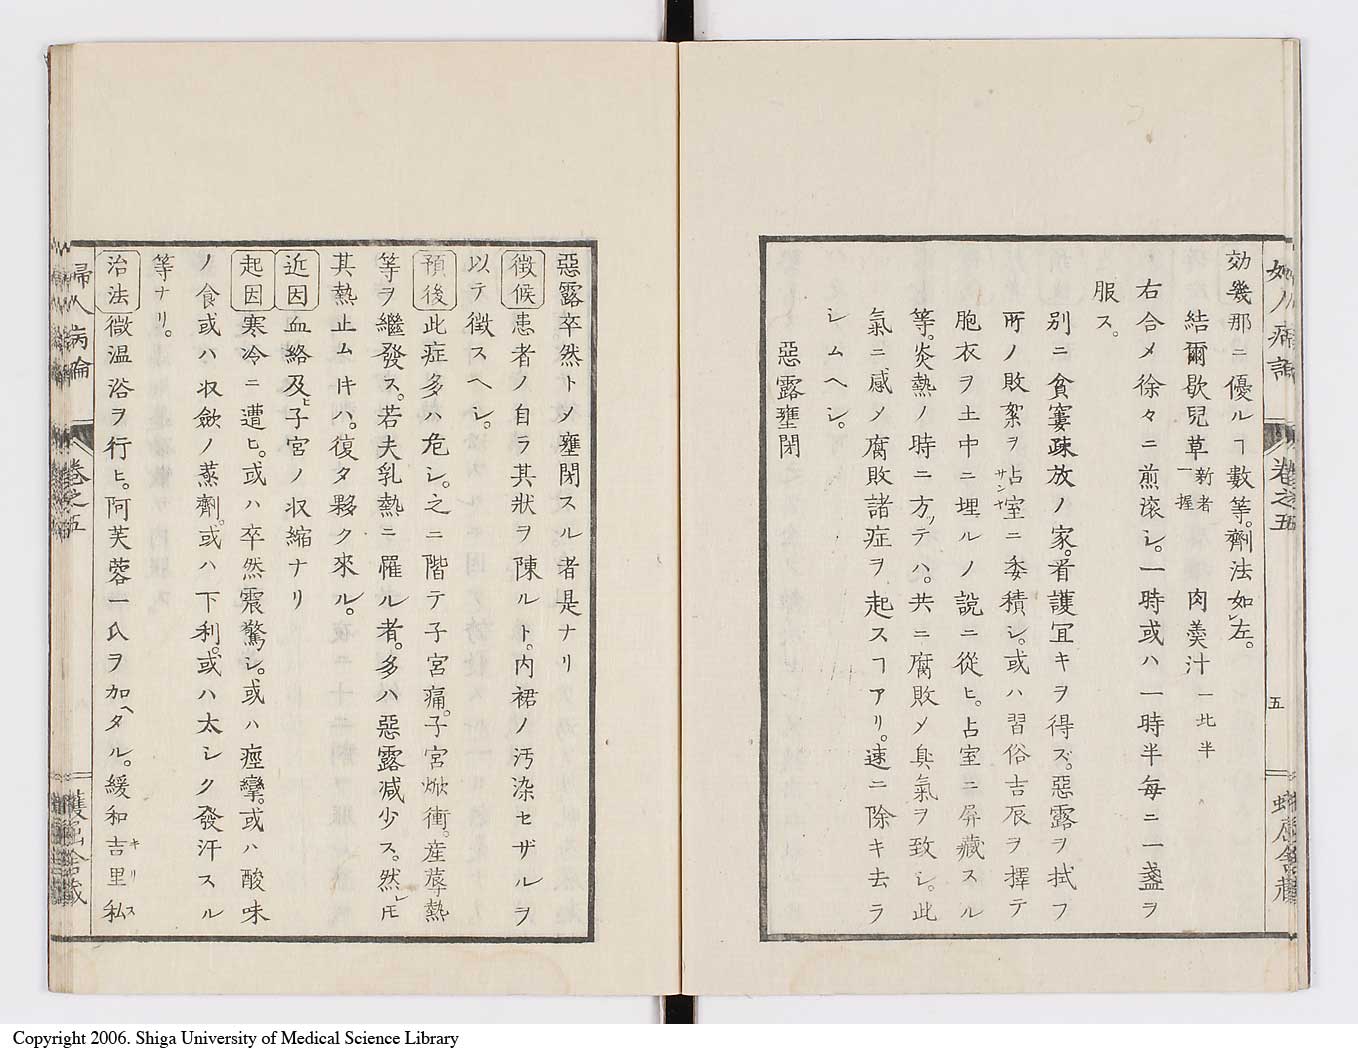 効幾那ニ優ルヿ數等。劑法如レ左。
結爾歇兒草 新者一握 肉羮汁 一北半
右合メ徐々ニ煎滾シ。一時或ハ一時半每ニ一盞ヲ
服ス。
別ニ貧窶疎放ノ家。看護宜キヲ得ズ。惡露ヲ拭フ
所ノ敗絮ヲ占室サンヤニ委積シ。或ハ習俗吉辰ヲ擇テ
胞衣ヲ土中ニ埋ルノ說ニ從ヒ。占室ニ屏藏スル
等。炎熱ノ時ニ方ツテハ。共ニ腐敗メ臭氣ヲ致シ。此
氣ニ感メ腐敗諸症ヲ起スヿアリ。速ニ除キ去ラ
シムヘシ。
惡露壅閉
惡露卒然トメ壅閉スル者是ナリ
徵候 患者ノ自ラ其狀ヲ陳ルト。内裙ノ汚染セザルヲ
以テ徵スヘシ。
預後 此症多ハ危シ。之ニ階テ子宮痛。子宮焮衝。産蓐熱
等ヲ繼發ス。若夫乳熱ニ罹ル者。多ハ惡露减少ス。然レ𪜈
其熱止ムキハ。復タ夥ク來ル。
近因 血絡及ヒ子宮ノ収縮ナリ
起因 寒冷ニ遭ヒ。或ハ卒然震驚シ。或ハ痙攣。或ハ酸味
ノ食或ハ収斂ノ藥劑。或ハ下利。或ハ太シク發汗スル
等ナリ。
治法 微温浴ヲ行ヒ。阿芙蓉一氏ヲ加ヘタル。緩和吉里私キリス
婦人病論 卷之五
五
Copyright 2006. Shiga University of Medical Science Library